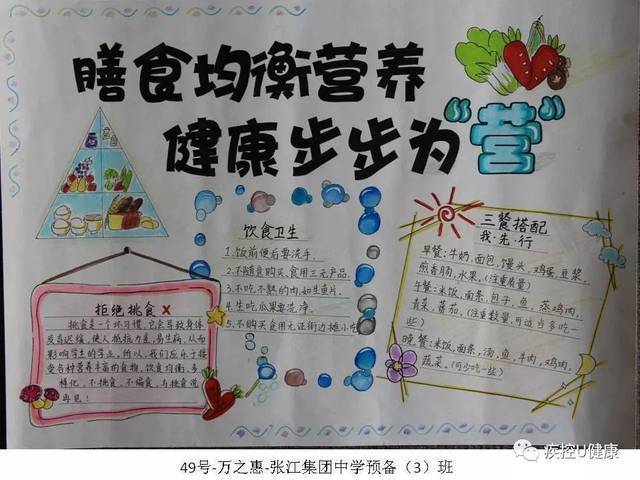 膳食均衡营养
健康步步为“营”
饮食卫生
1.饭前便后要洗手.
2.不随意购买、食用三无产品.
3.不吃不熟的肉,如生鱼片.
4.生吃瓜果要洗净.
5.不购买食用无证街边摊小吃
三餐搭配
我·先·行
早餐:牛奶,面包,馒头,鸡蛋,豆浆,
煎香肠,水果,(注重质量)
午餐:米饭,面条,包子,鱼,蒸鸡肉,
青菜,番茄,(注重数量,可适当多吃一
些)
晚餐:米饭,面条,汤,鱼,牛肉,鸡肉,
蔬菜,(可少吃一些)
拒绝挑食
挑食是一个坏习惯,它会导致身体
发育迟缓,使人抵抗力差,易生病,从而
影响学生的学业,所以,我们应
受各种营养丰富的食物,饮食均衡,多
样化,不挑食,不偏食,与挑食说
再见!
疾控U健康
49号-万之惠-张江集团中学预备(3)班